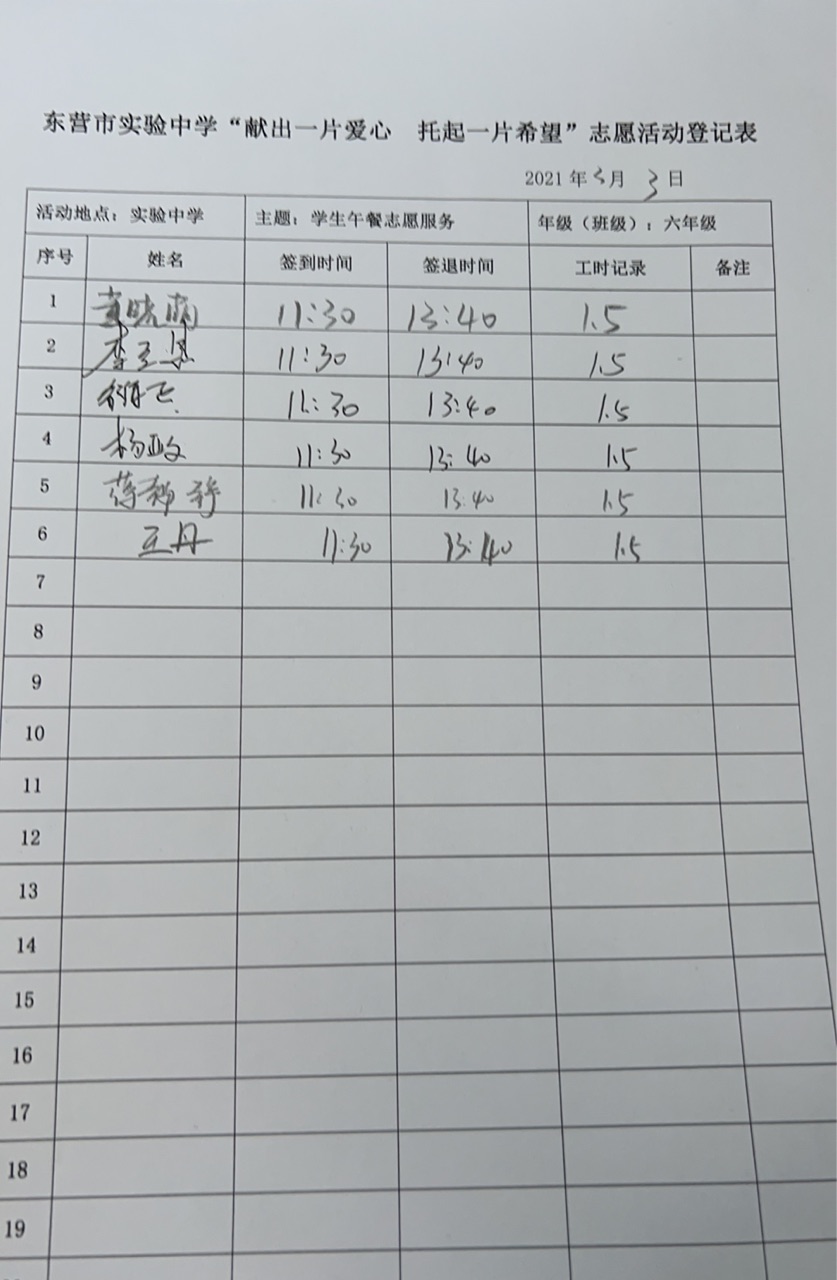 东营市实验中学“献出一片爱心 托起一片希望”志愿活动登记表
2021年3月3日
活动地点：实验中学 主题：学生午餐志愿服务 年级（班级）：六年级
序号 姓名 签到时间 签退时间 工时记录 备注
1 11:30 13:40 1.5
2 11:30 13:40 1.5
3 11:30 13:40 1.5
4 杨政文 11:30 13:40 1.5
5 11:30 13:40 1.5
6 王丹 11:30 13:40 1.5
7
8
9
10
11
12
13
14
15
16
17
18
19